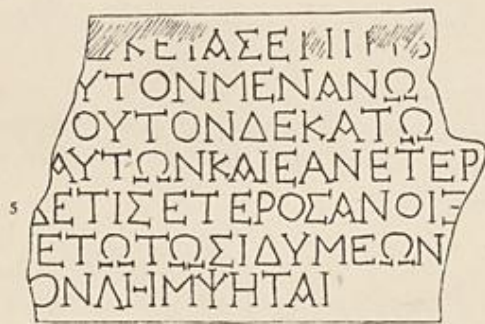 ΥΤΟΝΜΕΝΑΝΩ
ΟΥΤΟΝΔΕΚΑΤΩ
ΑΥΤΩΝΚΑΙΕΑΝΕΤΕΡ
5 ΔΕΤΙΣΕΤΕΡΟΣΑΝΟΙΞ
ΕΤΩΤΩΣΙΔΥΜΕΩΝ
ΟΝΛΗΜΨΗΤΑΙ